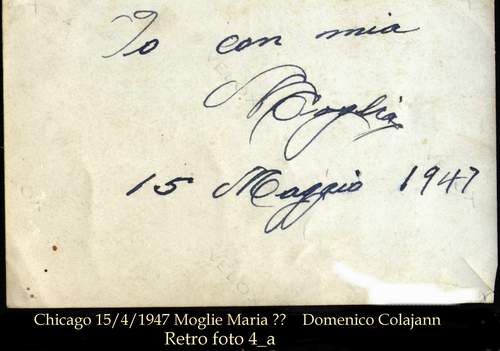 Io con mia
Moglia
15 Maggio 1947
Chicago 15/4/1947 Moglie Maria ?? Domenico Colajann
Retro foto 4_a